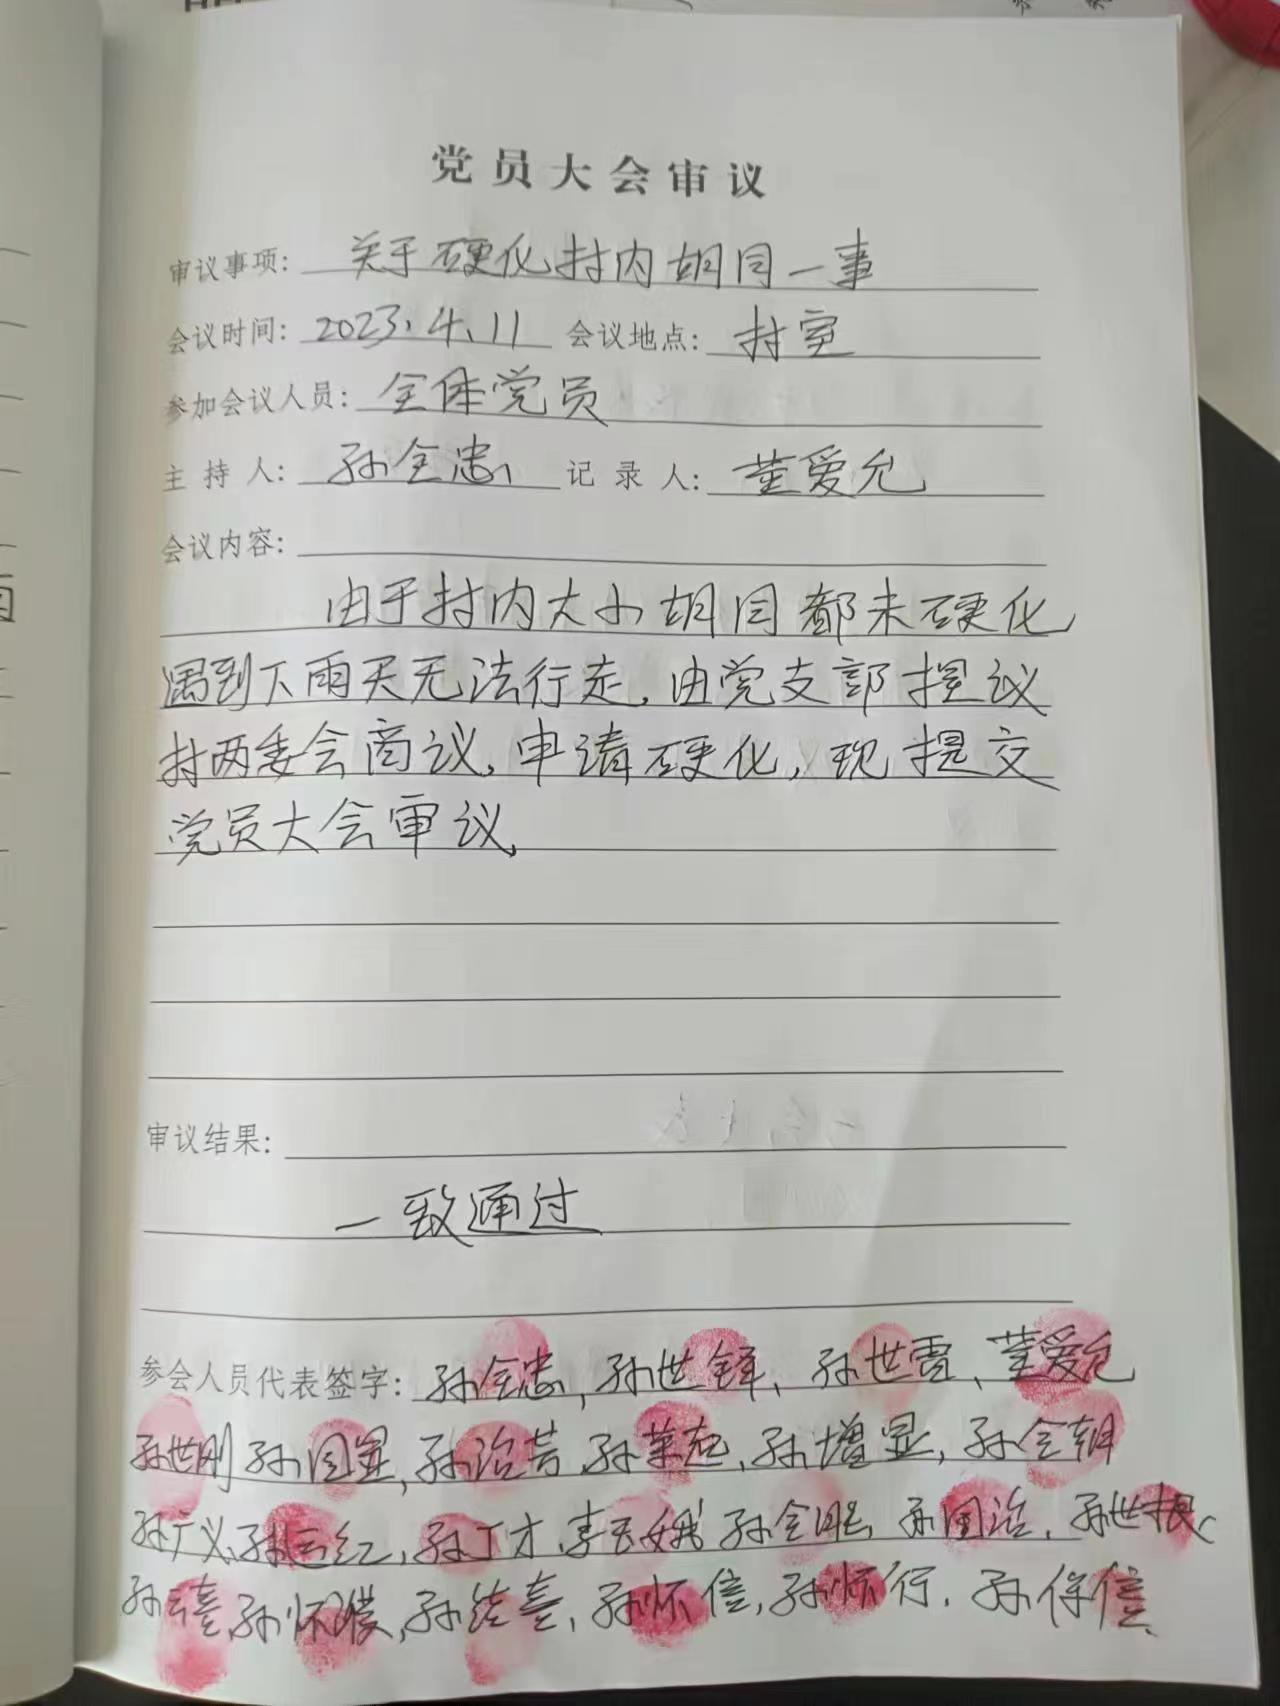 党员大会审议
审议事项: 关于硬化村内胡同一事
会议时间: 2023.4.11 会议地点: 村室
参加会议人员: 全体党员
主持人: 孙全忠 记录人: 董爱允
会议内容:
由于村内大小胡同都未硬化
遇到下雨天无法行走,由党支部提议
村两委会商议,申请硬化,现提交
党员大会审议,
审议结果:
一致通过
参会人员代表签字: 孙全忠,孙世铎、孙世雷、董爱允
孙世刚 孙国显,孙治芳,孙荣起,孙增显,孙全朝
孙广义,孙云红,孙丁才,李玉娥 孙国治,孙世根
孙云喜,孙怀璞,孙结喜,孙怀信,孙怀行,孙保信